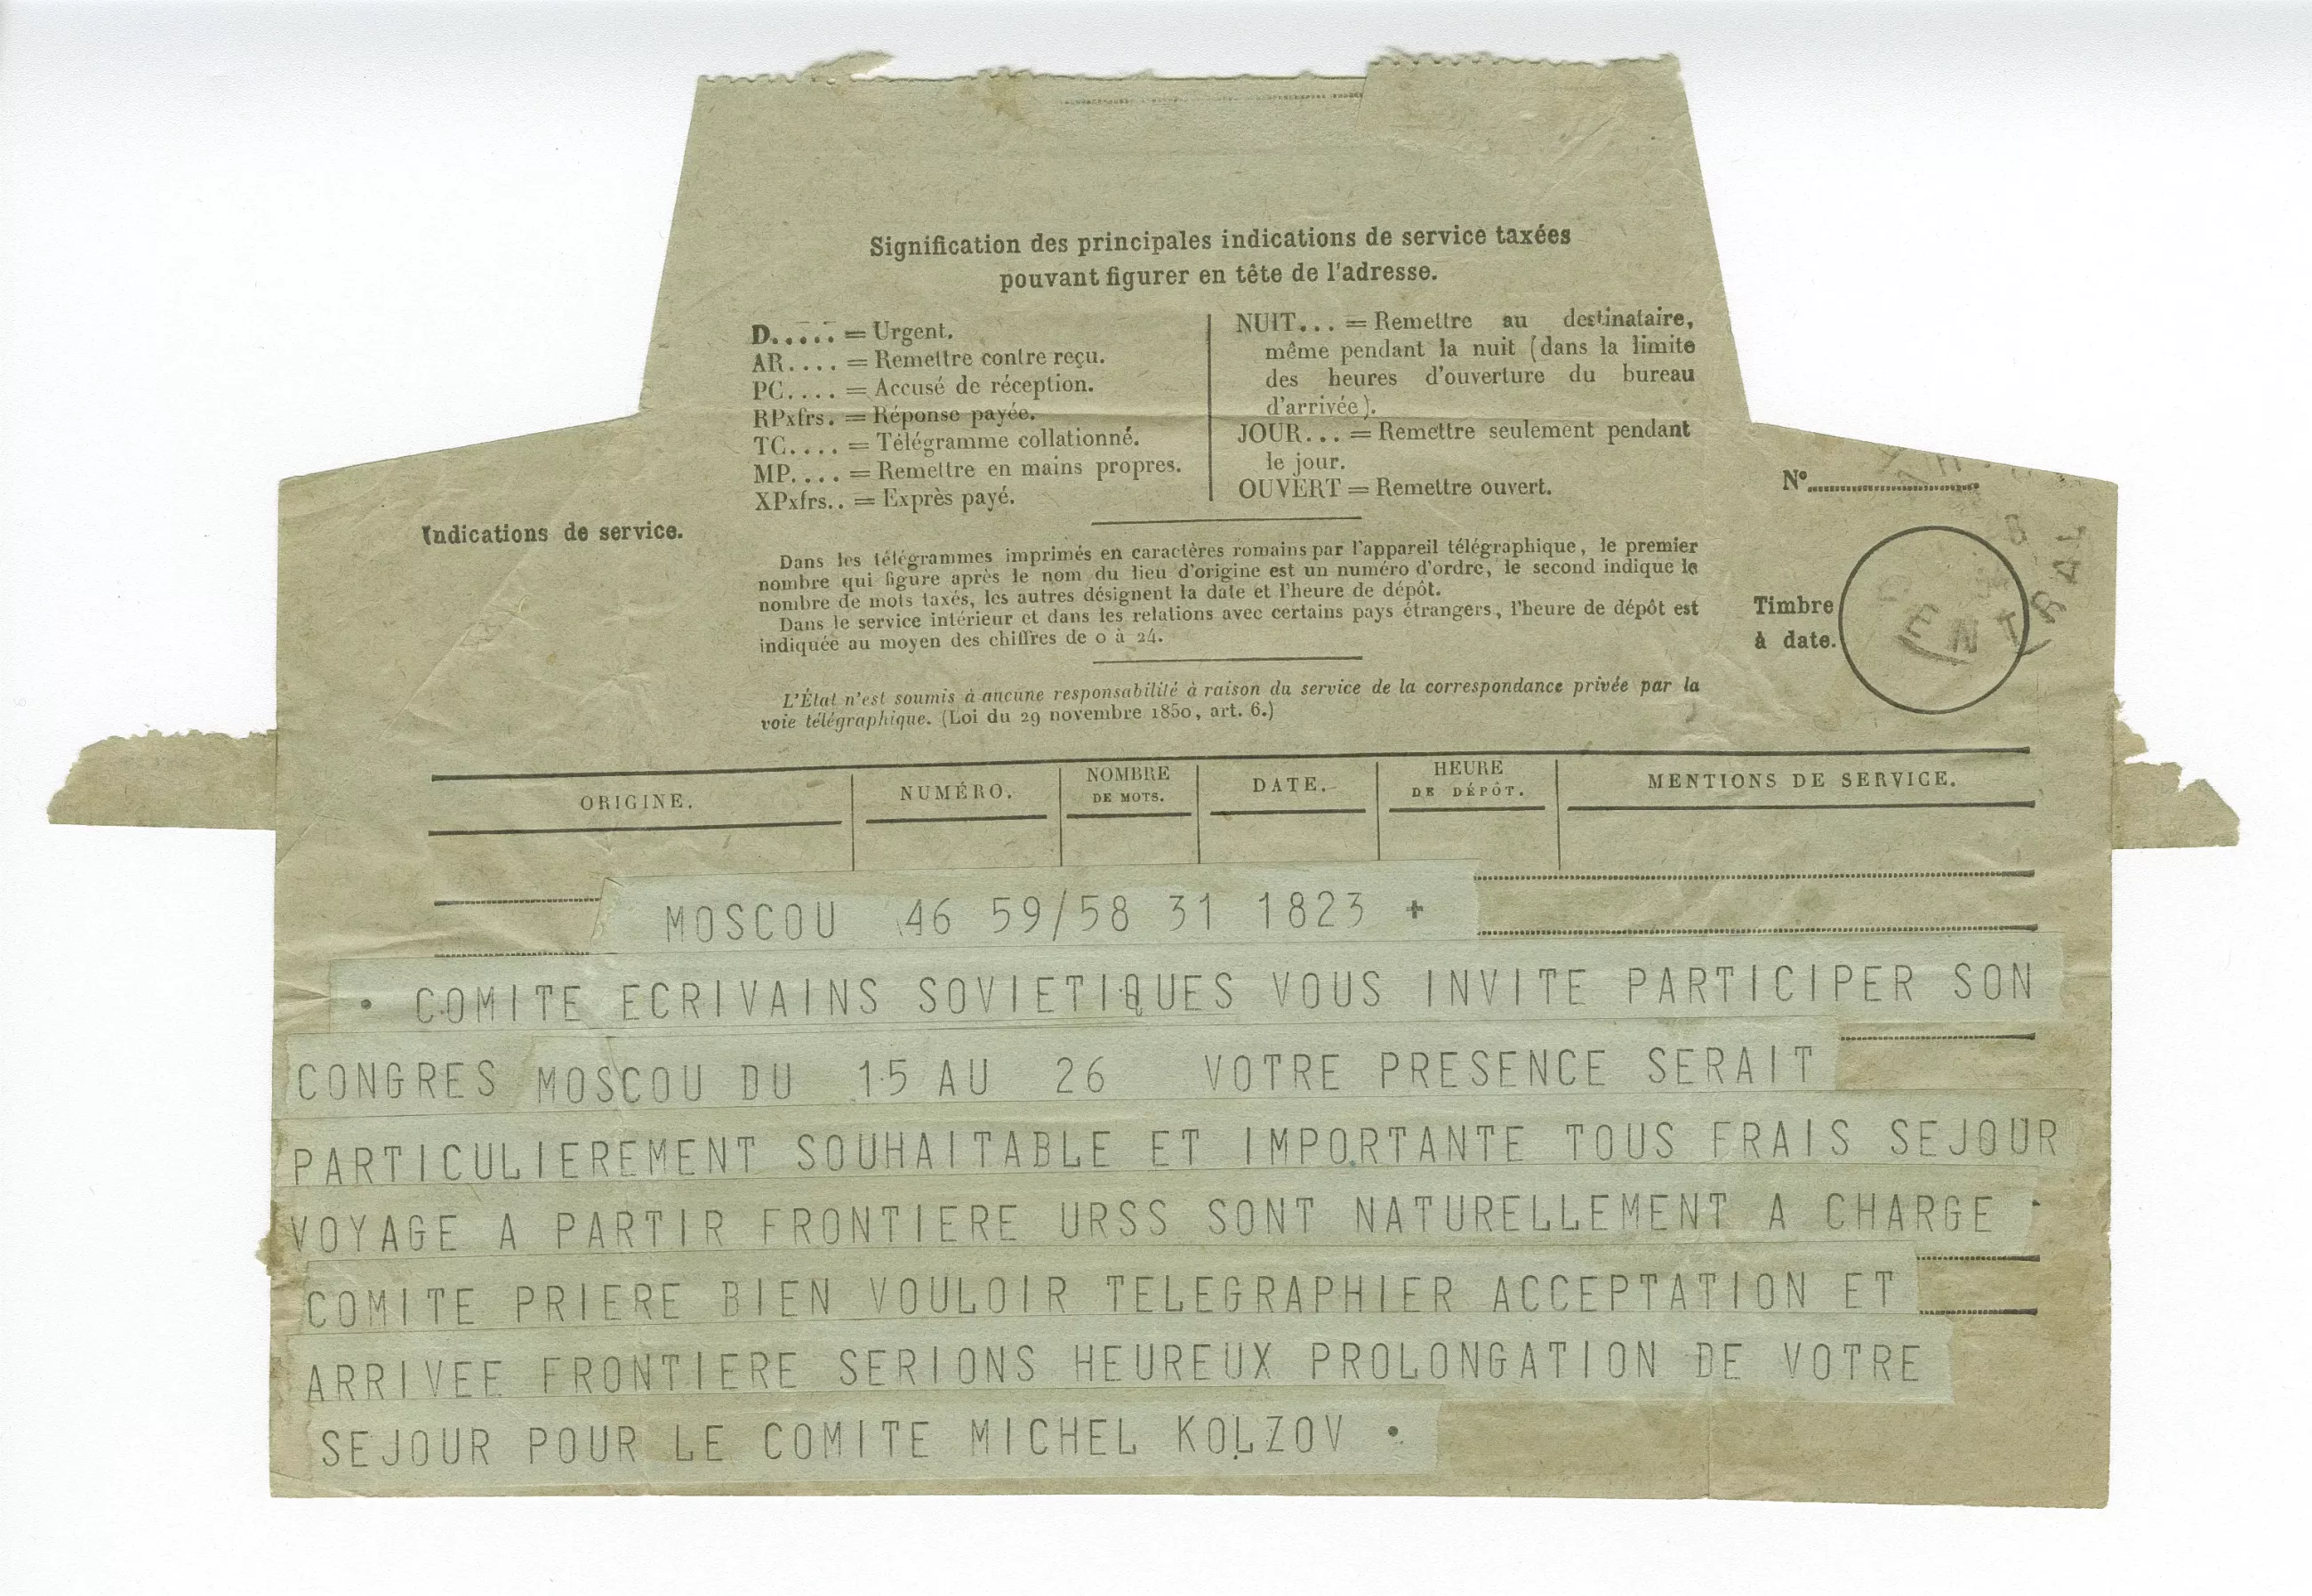 Signification des principales indications de service taxées
pouvant figurer en tête de l'adresse.
D..... = Urgent.
AR.... = Remettre contre reçu.
PC.... = Accusé de réception.
RPxfrs. = Réponse payée.
TC.... = Télégramme collationné.
MP.... = Remettre en mains propres.
XPxfrs.. = Exprès payé.
NUIT... = Remettre au destinataire,
même pendant la nuit (dans la limite
des heures d'ouverture du bureau
d'arrivée).
JOUR... = Remettre seulement pendant
le jour.
OUVERT = Remettre ouvert.
Indications de service.
Dans les télégrammes imprimés en caractères romains par l'appareil télégraphique, le premier
nombre qui figure après le nom du lieu d'origine est un numéro d'ordre, le second indique le
nombre de mots taxés, les autres désignent la date et l'heure de dépôt.
Dans le service intérieur et dans les relations avec certains pays étrangers, l'heure de dépôt est
indiquée au moyen des chiffres de 0 à 24.
L'État n'est soumis à aucune responsabilité à raison du service de la correspondance privée par la
voie télégraphique. (Loi du 29 novembre 1850, art. 6.)
N°
Timbre
à date.
CENTRAL
ORIGINE. NUMÉRO. NOMBRE DE MOTS. DATE. HEURE DE DÉPÔT. MENTIONS DE SERVICE.
MOSCOU 46 59/58 31 1823 +
• COMITE ECRIVAINS SOVIETIQUES VOUS INVITE PARTICIPER SON
CONGRES MOSCOU DU 15 AU 26 VOTRE PRESENCE SERAIT
PARTICULIEREMENT SOUHAITABLE ET IMPORTANTE TOUS FRAIS SEJOUR
VOYAGE A PARTIR FRONTIERE URSS SONT NATURELLEMENT A CHARGE
COMITE PRIERE BIEN VOULOIR TELEGRAPHIER ACCEPTATION ET
ARRIVEE FRONTIERE SERIONS HEUREUX PROLONGATION DE VOTRE
SEJOUR POUR LE COMITE MICHEL KOLZOV •